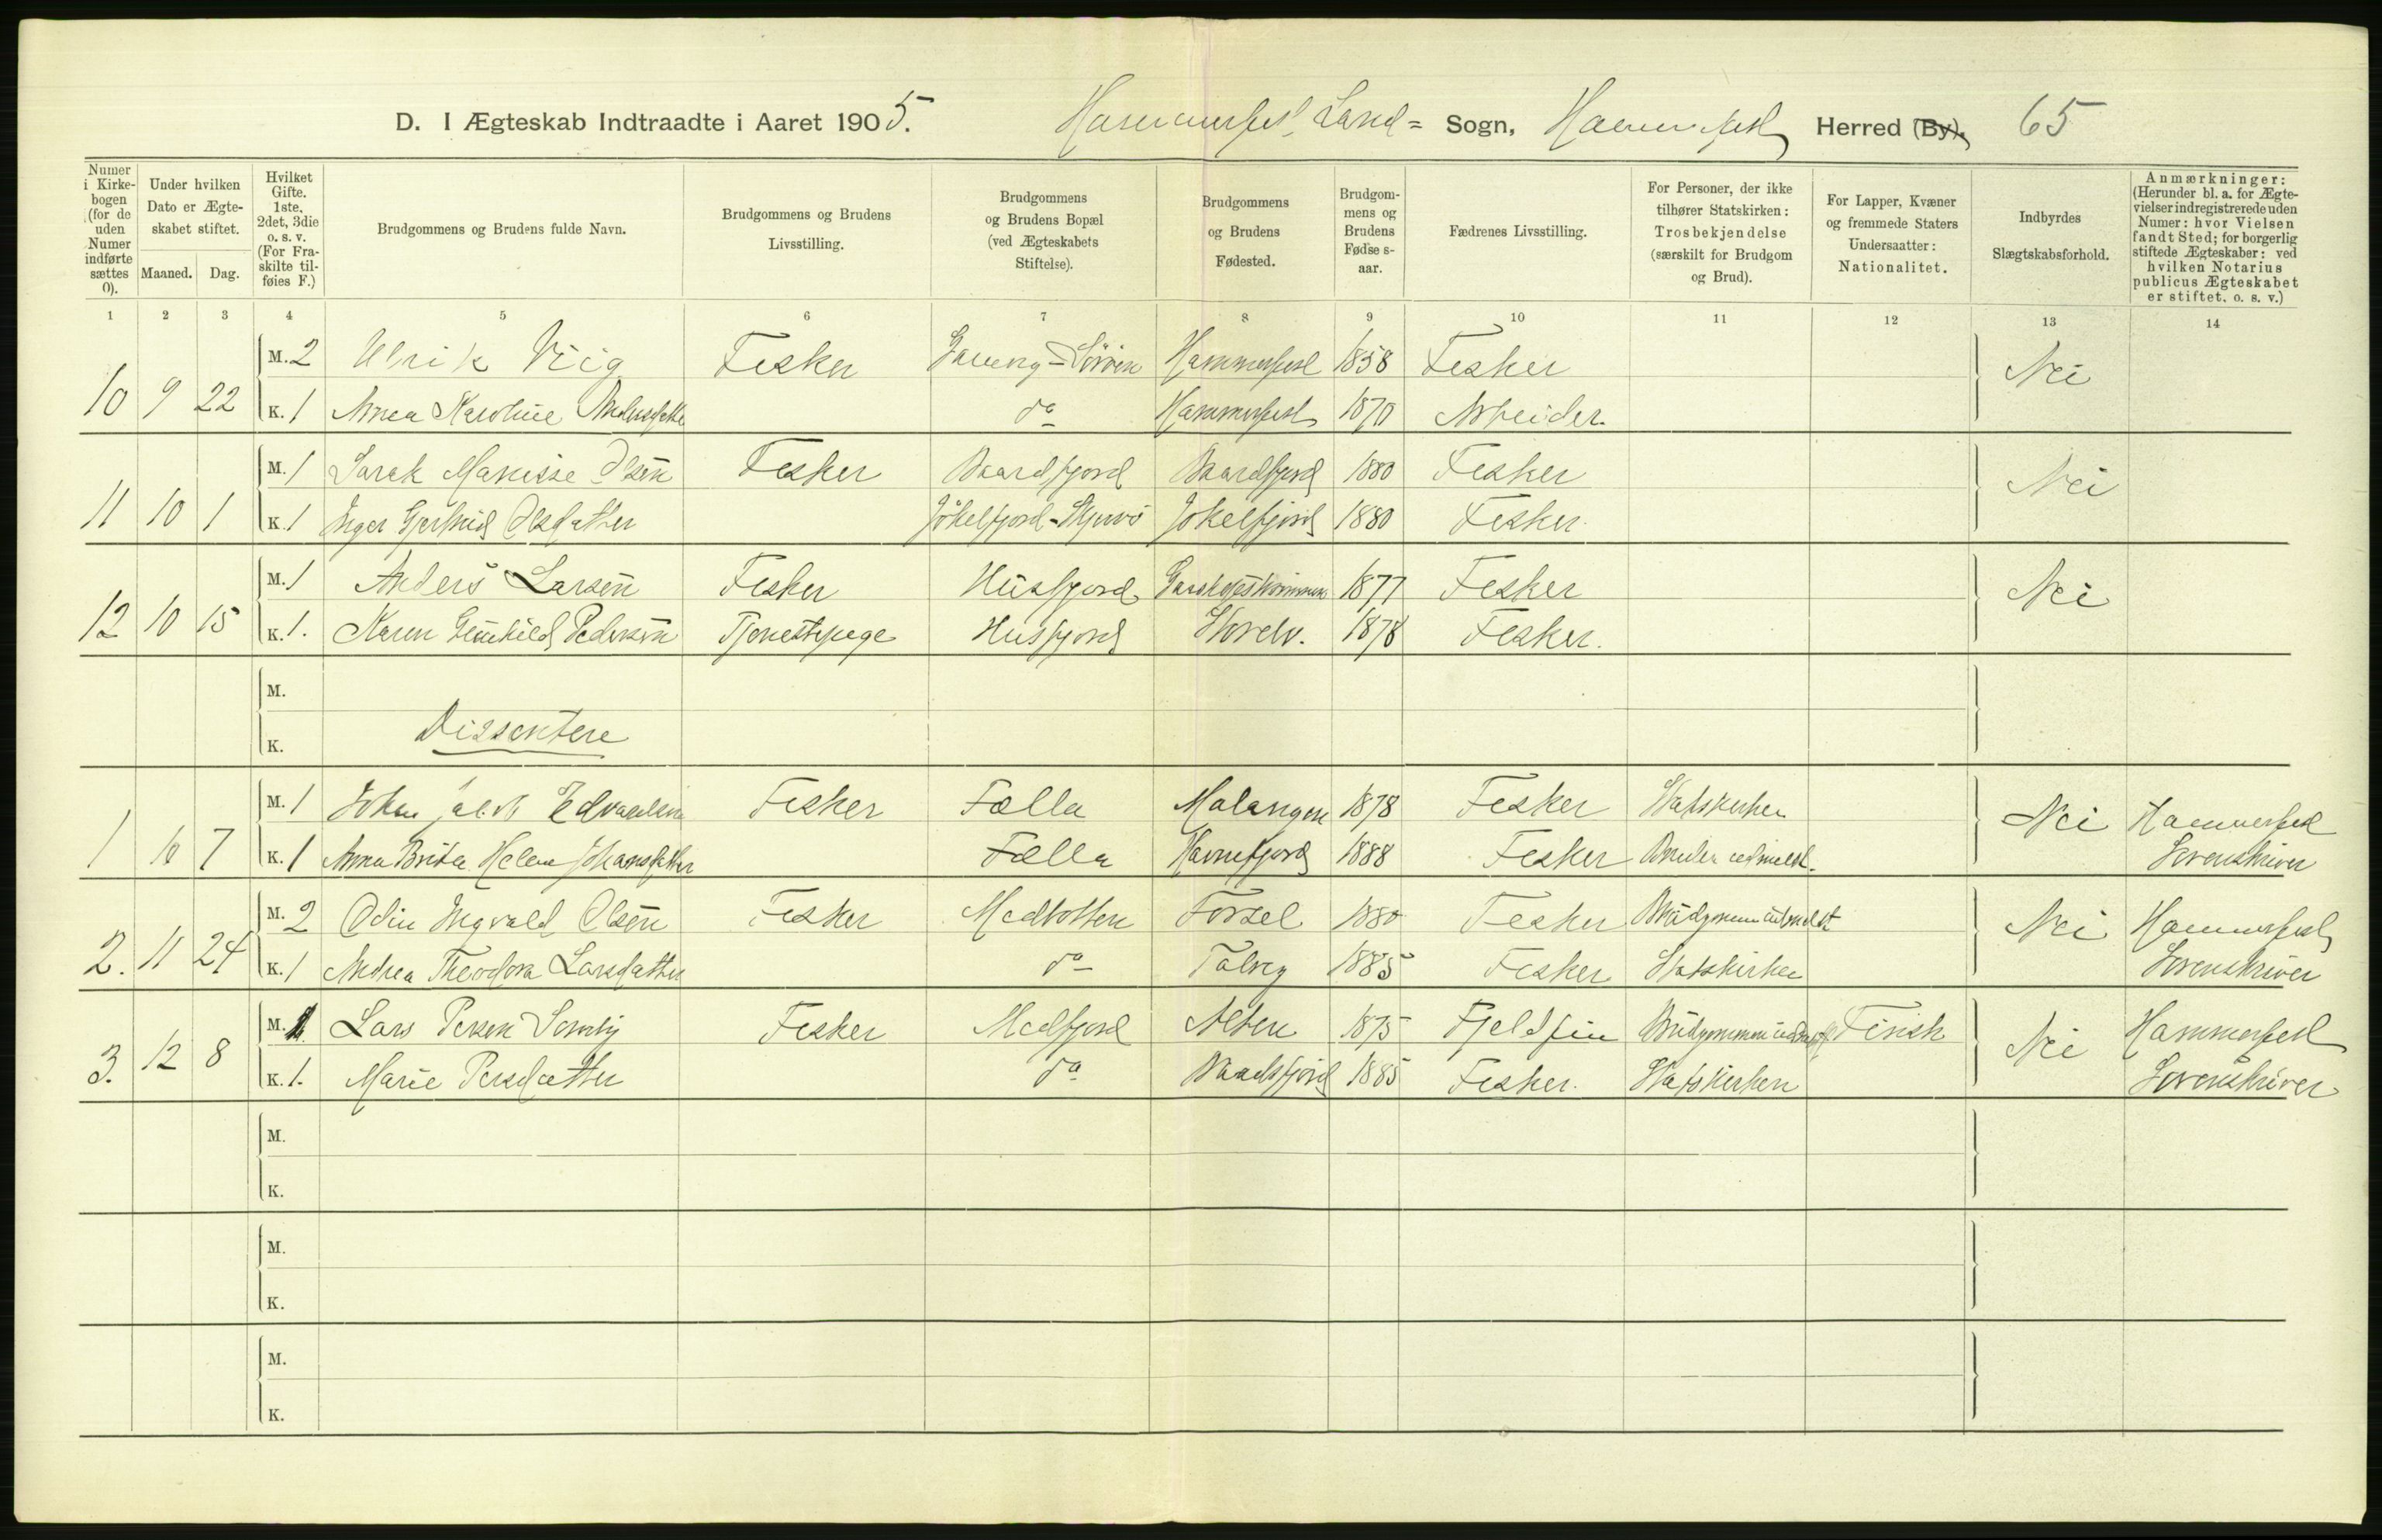 D. I Ægteskab Indtraadte i Aaret 1905. Hammerfest Land= Sogn, Hammerfest Herred (By). 65
Numer i Kirke-bogen (for de uden Numer indførte sættes 0).
Under hvilken Dato er Ægte-skabet stiftet.
Maaned. Dag.
Hvilket Gifte. 1ste. 2det, 3die o. s. v. (For Fra-skilte til-føies F.)
Brudgommens og Brudens fulde Navn.
Brudgommens og Brudens Livsstilling.
Brudgommens og Brudens Bopæl (ved Ægteskabets Stiftelse).
Brudgommens og Brudens Fødested.
Brudgom-mens og Brudens Fødse s-aar.
Fædrenes Livsstilling.
For Personer, der ikke tilhører Statskirken: Trosbekjendelse (særskilt for Brudgom og Brud).
For Lapper, Kvæner og fremmede Staters Undersaatter: Nationalitet.
Indbyrdes Slægtskabsforhold.
Anmærkninger: (Herunder bl. a. for Ægte-vielser indregistrerede uden Numer: hvor Vielsen fandt Sted; for borgerlig stiftede Ægteskaber: ved hvilken Notarius publicus Ægteskabet er stiftet. o. s. v.)
1 2 3 4 5 6 7 8 9 10 11 12 13 14
10 9 22 M. 2 Ulrik Viig Fisker Hammerfest 1858 Fisker Nei
K. 1 Anna Karoline do Hammerfest 1870 Arbeider.
11 10 1 M. 1 Olsen Fisker Baardfjord Baardfjord 1880 Fisker Nei
K. 1 Inger Gjertrud Olsdatter Jökelfjord-Skjervö Jökelfjord 1880 Fisker.
12 10 15 M. 1 Anders Larsen Fisker Husfjord 1877 Fisker Nei
K. 1. Karen Pedersen Tjenestepige Husfjord Storelv. 1878 Fisker.
M.
K. Dissentere
1 10 7 M. 1 Johan Jakob Edvardsen Fisker Fælla Malangen 1878 Fisker Statskirken Nei Hammerfest
K. 1 Anna Brita Helene Johansdatter Fælla Havnefjord 1888 Fisker Bruden udmeldt. Sorenskriver
2. 11 24 M. 2 Odin Ingvald Olsen Fisker Medbotten Forsel 1880 Fisker Brudgommen udmeldt Nei Hammerfest
K. 1 Andrea Theodora Larsdatter do Talvig 1885 Fisker Statskirken Sorenskriver
3. 12 8 M. 1. Lars Persen Somby Fisker Medfjord Alten 1875 Fjeldfin Brudgommen udmeldt. Finsk Nei Hammerfest
K. 1. Marie Persdatter do 1885 Fisker. Statskirken Sorenskriver
M.
K.
M.
K.
M.
K.